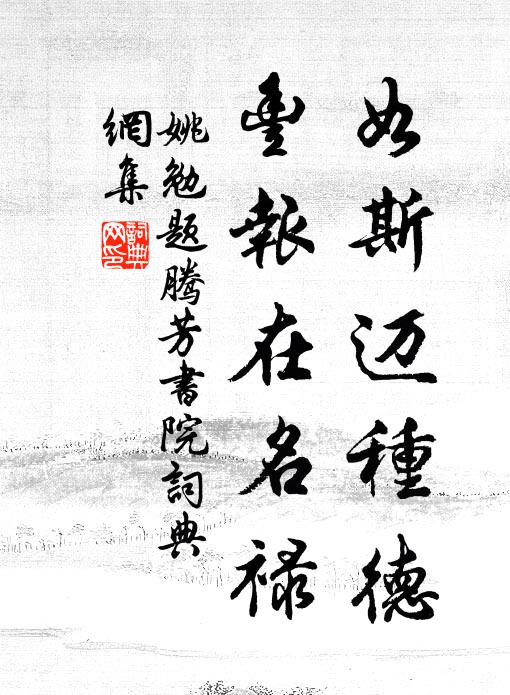 如斯迈種德
豊報在名禄
姚勉题腾芳書院詞典
網集
詞典
网印